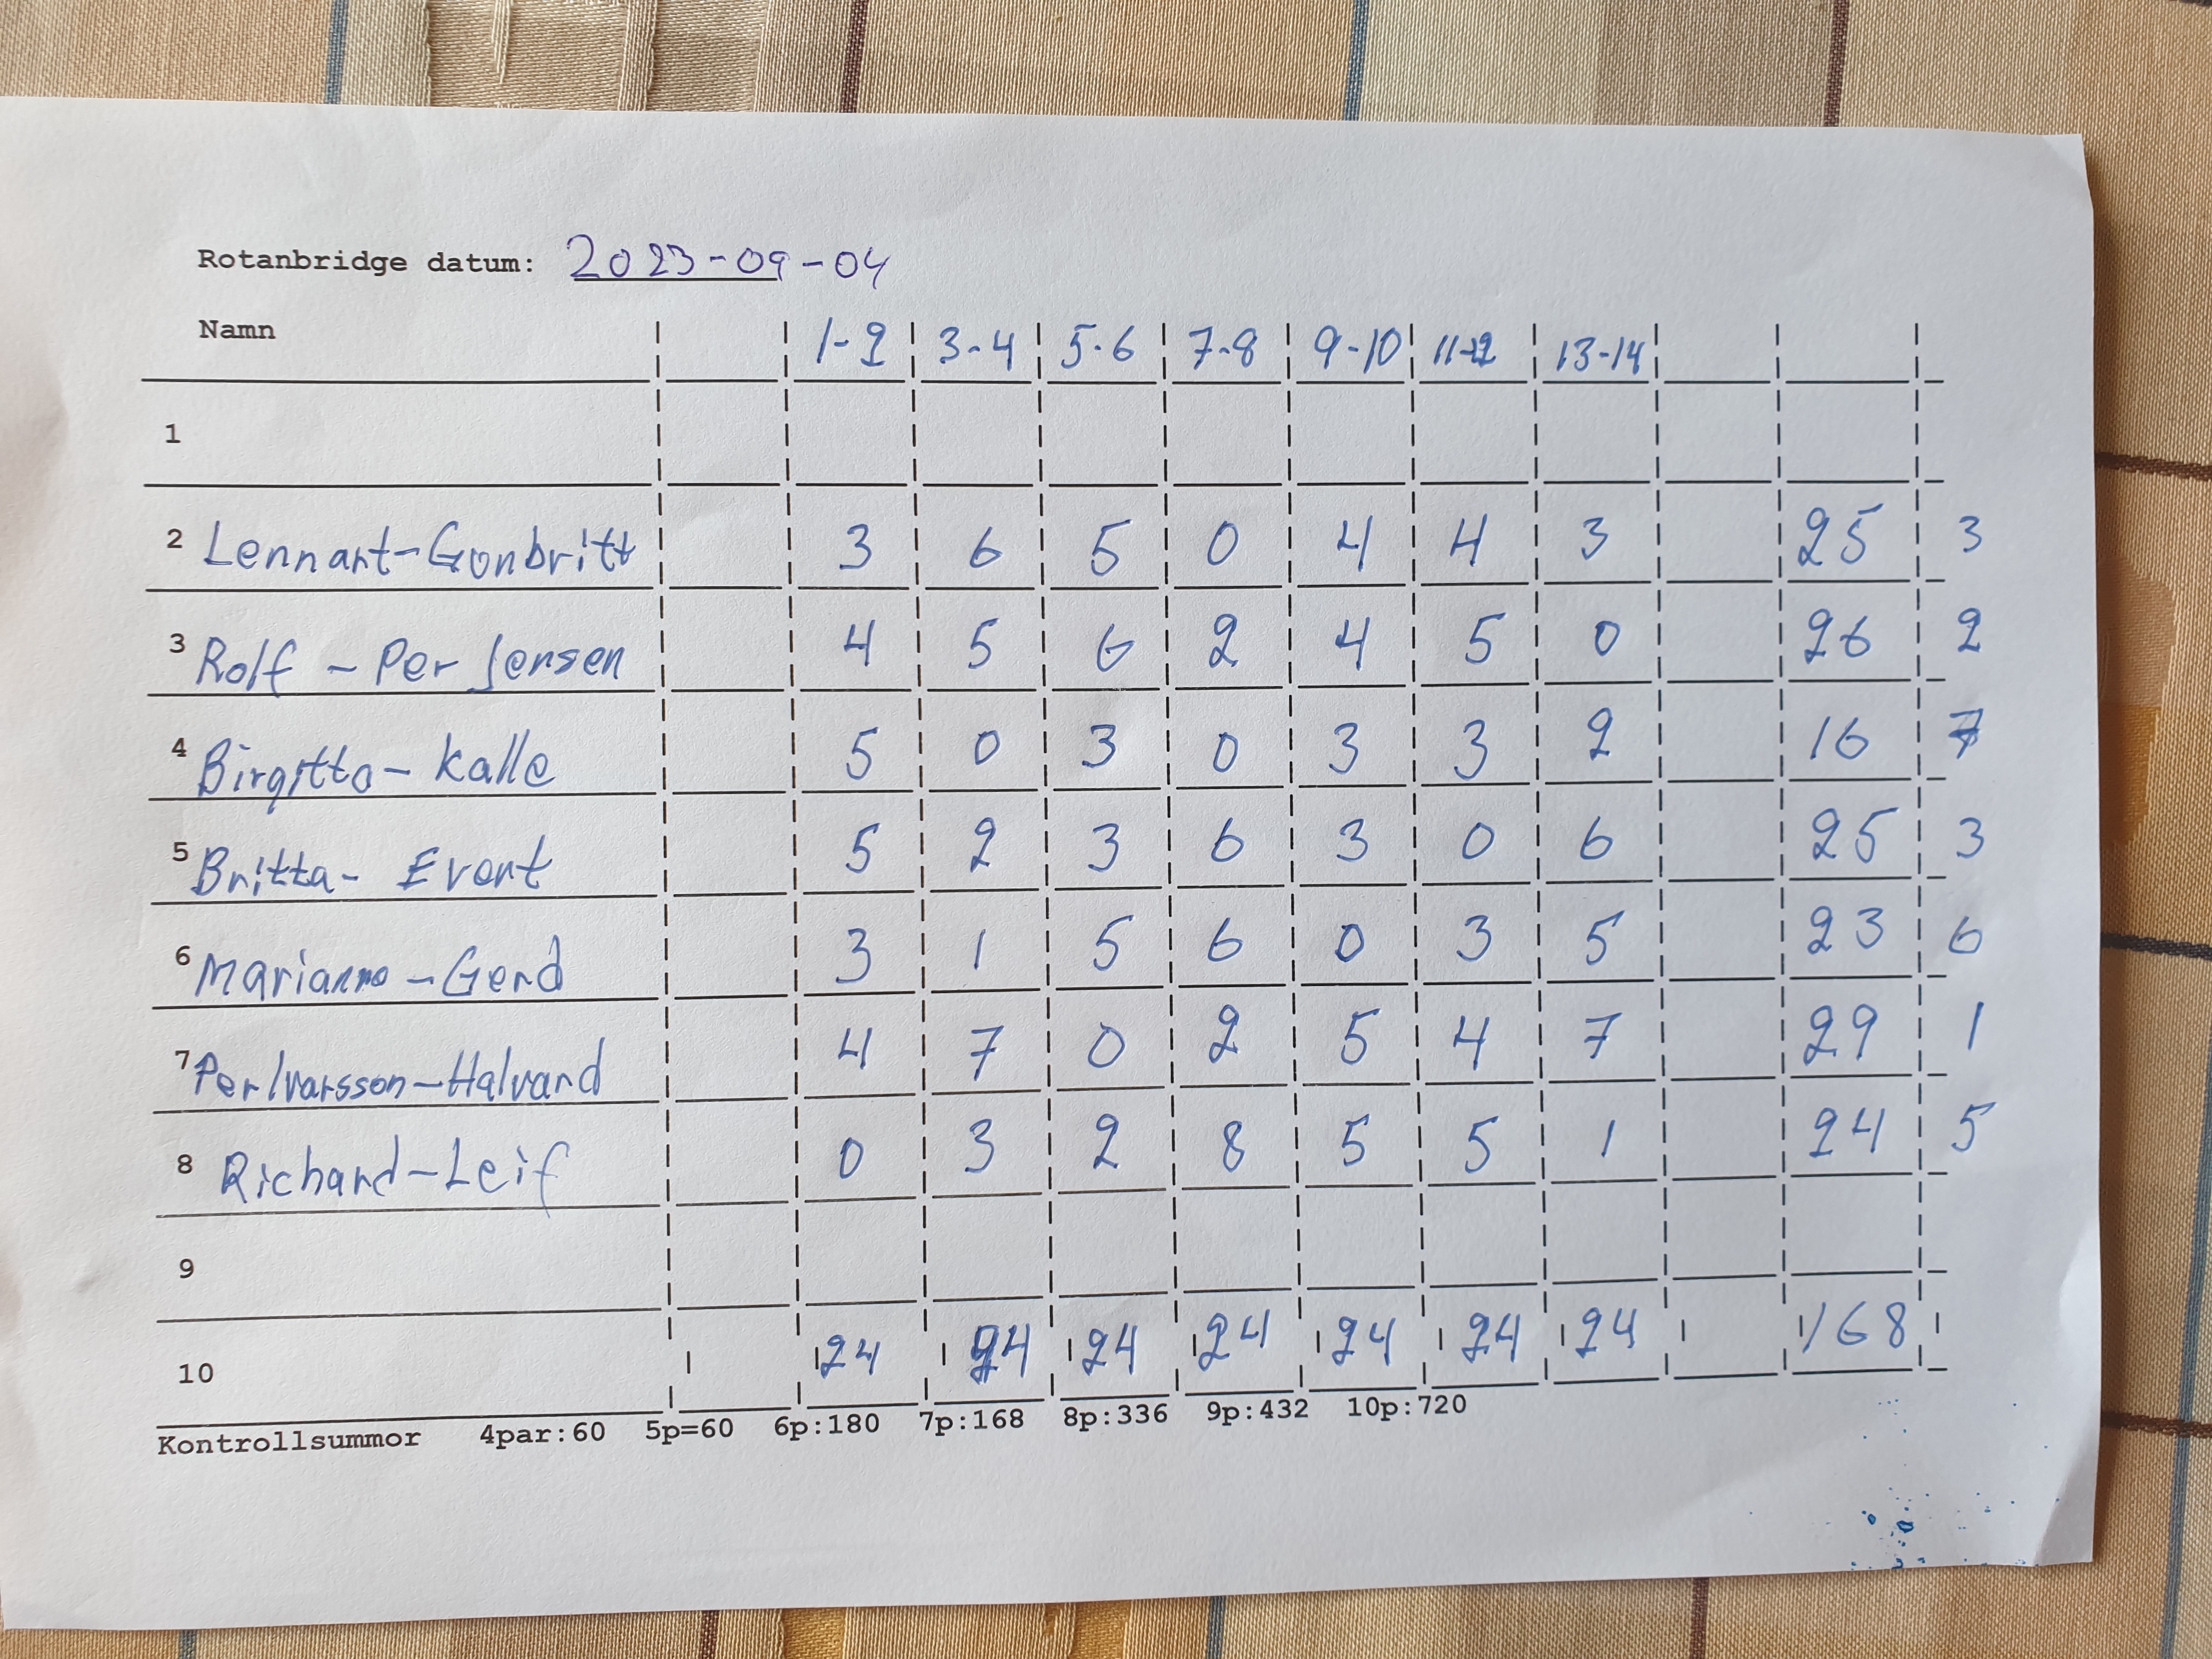 Rotanbridge datum: 2023-09-04
Namn 1-2 3-4 5-6 7-8 9-10 11-12 13-14
1
2 Lennart-Gunbritt 3 6 5 0 4 4 3 25 3
3 Rolf - Per Jensen 4 5 6 2 4 5 0 26 2
4 Birgitta - Kalle 5 0 3 0 3 3 2 16 7
5 Britta - Evert 5 2 3 6 3 0 6 25 3
6 Marianne - Gerd 3 1 5 6 0 3 5 23 6
7 Per Ivarsson - Halvard 4 7 0 2 5 4 7 29 1
8 Richard - Leif 0 3 2 8 5 5 1 24 5
9
10 24 24 24 24 24 24 24 168
Kontrollsummor 4par:60 5p=60 6p:180 7p:168 8p:336 9p:432 10p:720